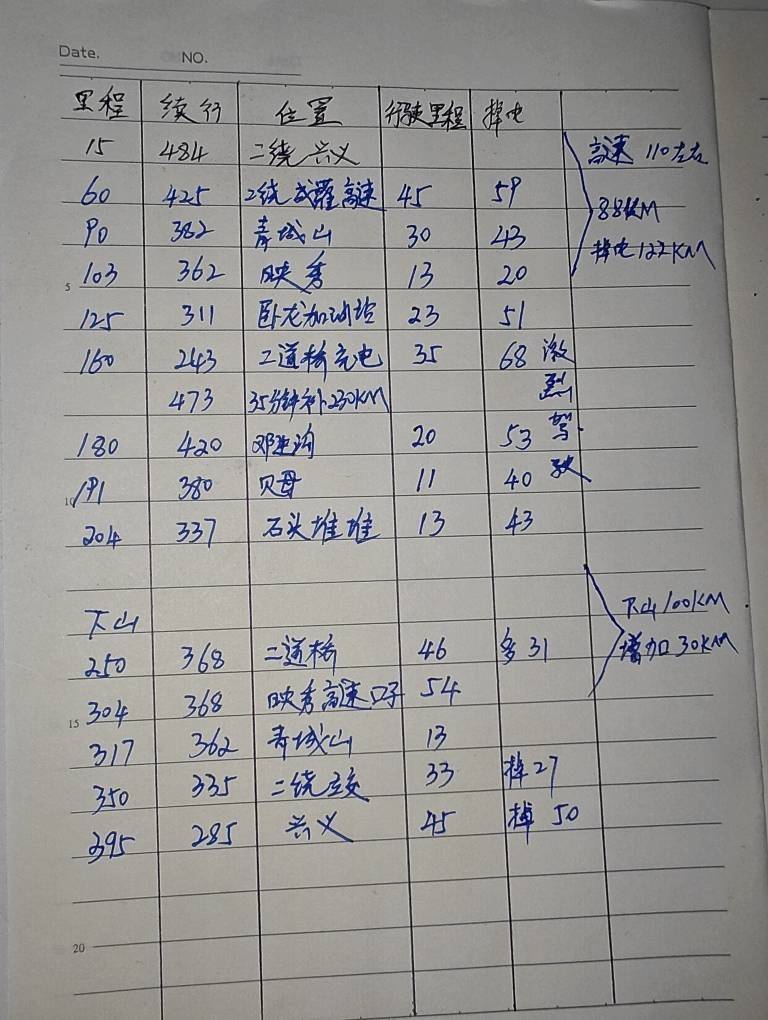 Date. NO.
里程 续行 位置 行驶里程 掉电
15 484 二绕兴义 高速 110左右
60 425 2绕成灌高速 45 59
88KM
90 382 青城山 30 43
掉电 122KM
5 103 362 映秀 13 20
125 311 卧龙加油站 23 51
160 243 二道桥充电 35 68 激
473 35分钟补230KM 烈
180 420 邓生沟 20 53 驾
10 191 380 贝母 11 40 驶
204 337 石头堆堆 13 43
下山 下山100KM
250 368 二道桥 46 多31 增加30KM
15 304 368 映秀高速口子 54
317 362 青城山 13
350 335 二绕立交 33 掉27
395 285 兴义 45 掉 50
20